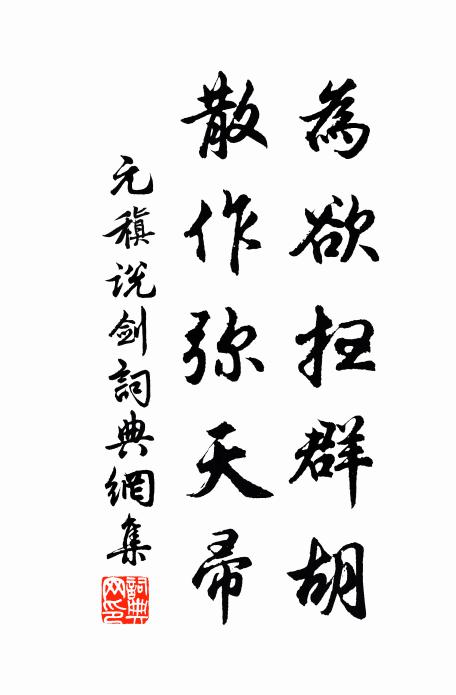 為欲扫群胡
散作弥天帚
元稹说剑詞典網集
詞典网印